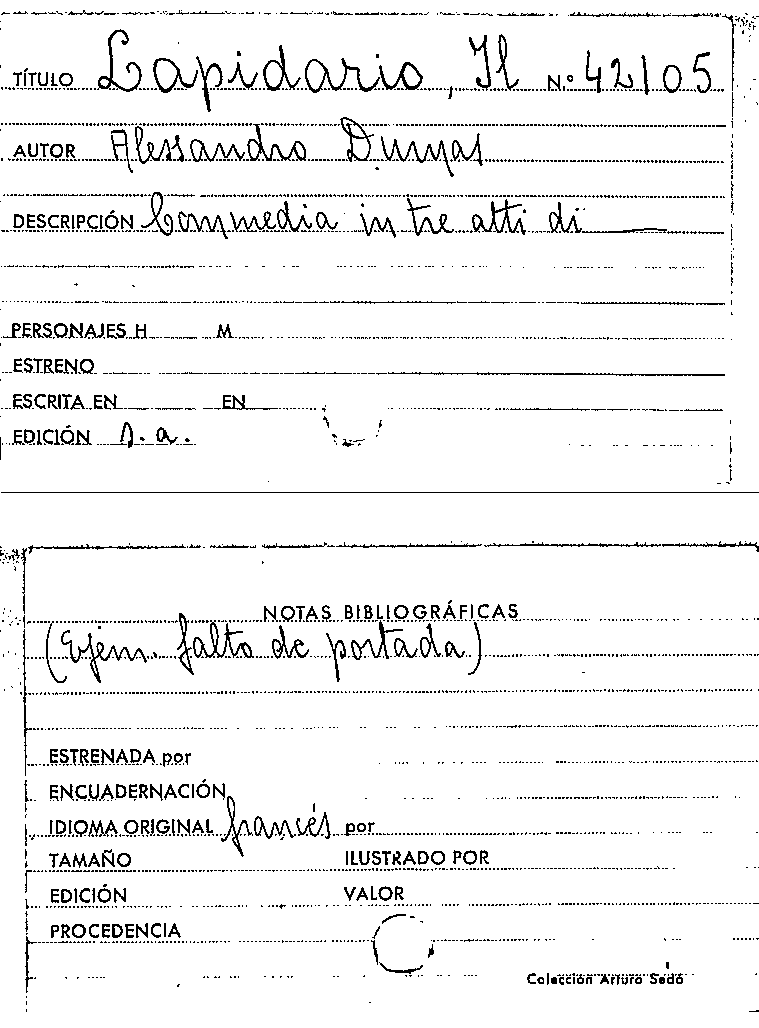 TÍTULO Lapidario, Il N.º 42105
AUTOR Alessandro Dumas
DESCRIPCIÓN Commedia in tre atti di ——
PERSONAJES H M
ESTRENO
ESCRITA EN EN
EDICIÓN s.a.
NOTAS BIBLIOGRÁFICAS
(Ejem. falto de portada)
ESTRENADA por
ENCUADERNACIÓN
IDIOMA ORIGINAL francés por
TAMAÑO ILUSTRADO POR
EDICIÓN VALOR
PROCEDENCIA
Colección Arturo Sedó